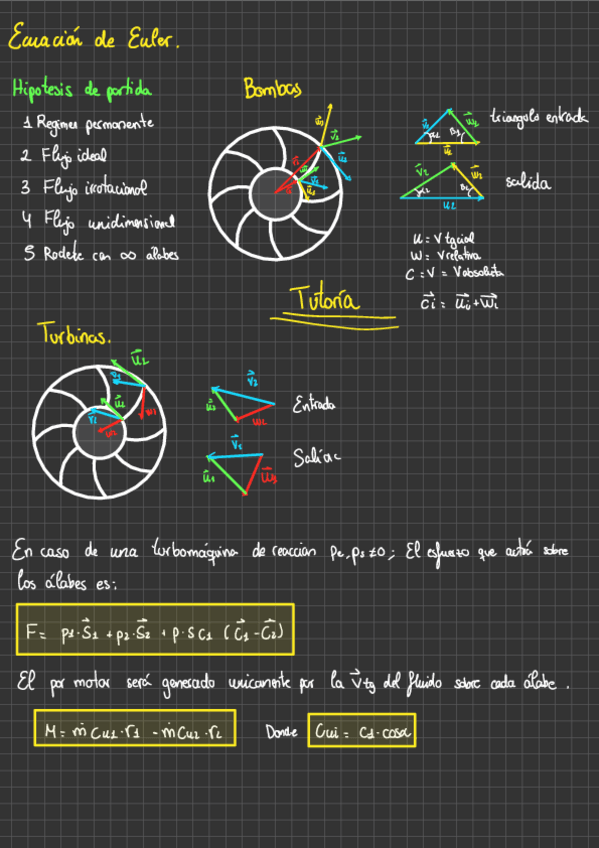 Ecuación de Euler.
Hipotesis de partida
1 Regimen permanente
2 Flujo ideal
3 Flujo irrotacional
4 Flujo unidimensional
5 Rodete con ∞ álabes
Bombas
triangolo entrada
salida
u = V tgcial
w = V relativa
c = V = V absoluta
c⃗i = u⃗i + w⃗i
Tutoría
Turbinas.
Entrada
En caso de una turbomáquina de reacción pe, ps ≠ 0; El esfuerzo que actúa sobre
los álabes es:
F = p1·S⃗1 + p2·S⃗2 + ρ·S c1 (C⃗1 - C⃗2)
El par motor será generado unicamente por la V⃗tg del fluido sobre cada álabe.
M = ṁ Cu1·r1 - ṁ Cu2·r2
Donde
Cui = C1·cosα